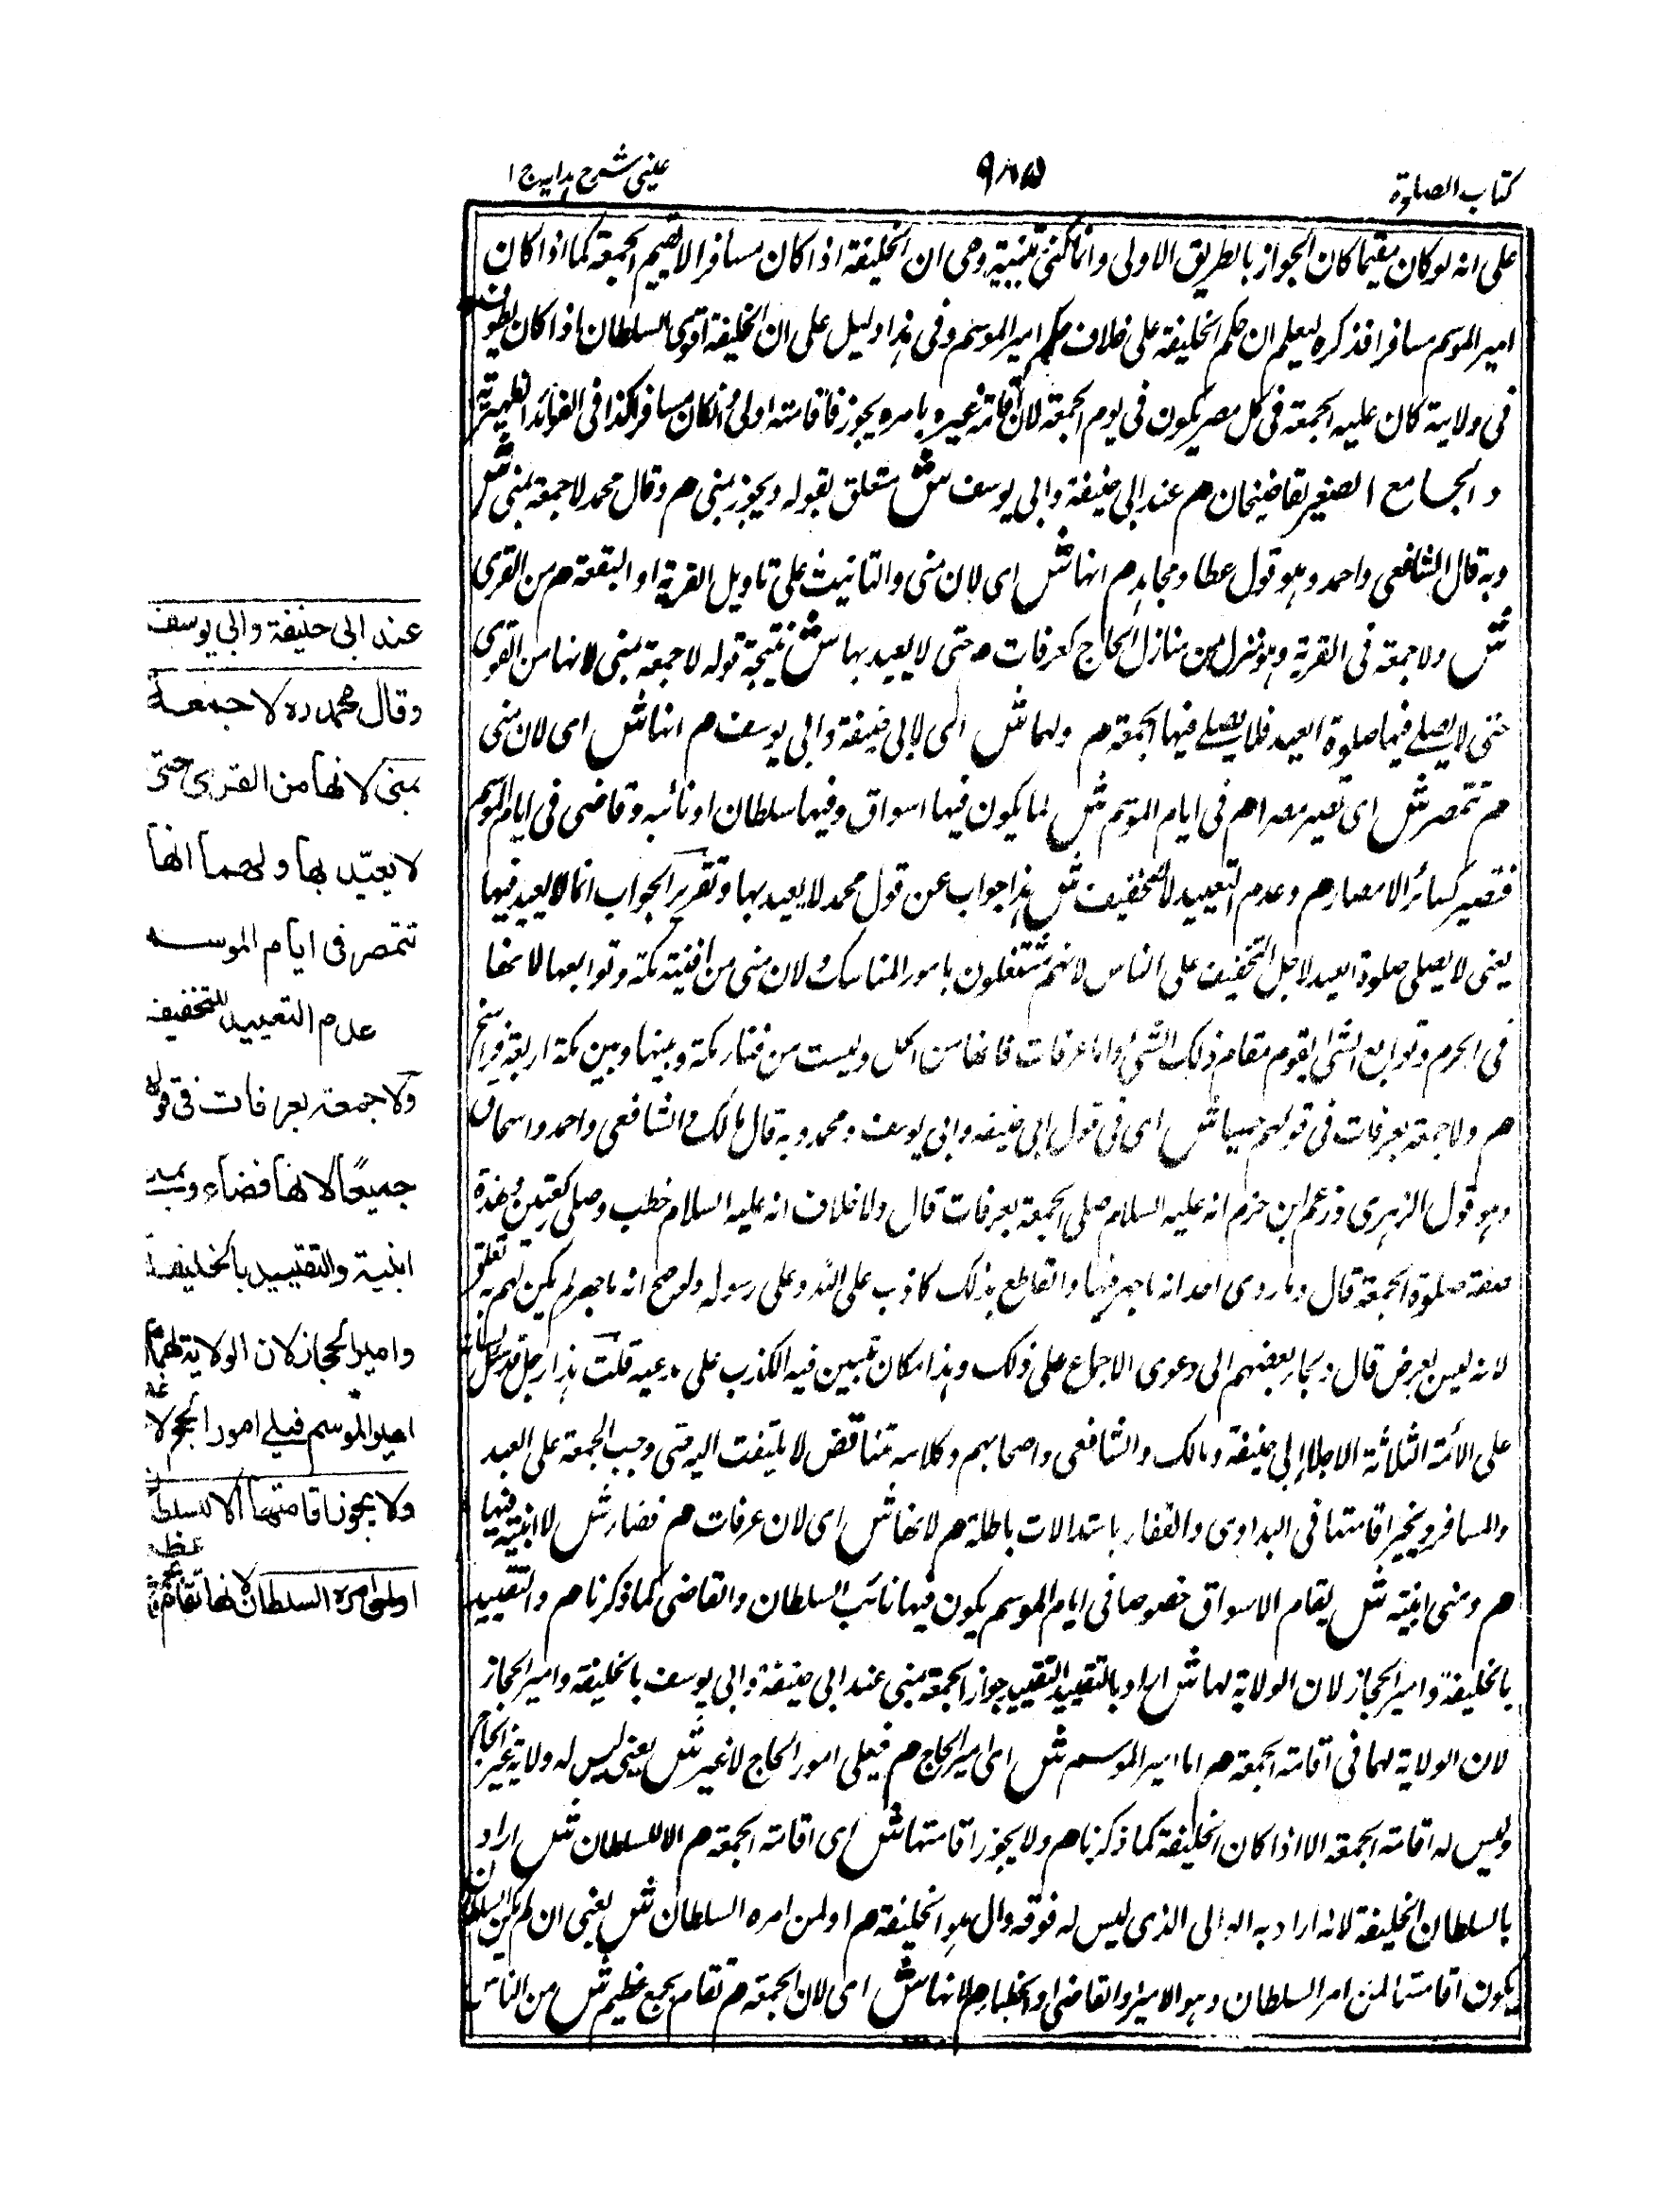 كتاب الصلوة
٩٨٥
عينى شرح هدايه ج ١
على انه لو كان مقيما كان الجواز بالطريق الاولى وانما تنبيه وهى ان الخليفة اذا كان مسافرا لا يقيم الجمعة كما اذا كان
امير الموسم مسافرا فذكره ليعلم ان حكم الخليفة على خلاف حكم امير الموسم وفى هذا دليل على ان الخليفة اقوى السلطان اذا كان يطوف
فى ولايته كان عليه الجمعة فى كل مصر يكون فى يوم الجمعة لان اقامة غيره بامره يجوز فاقامته اولى وان كان مسافرا كذا فى الفوائد الظهيرية
والجامع الصغير لقاضيخان هم عند ابى حنيفة وابى يوسف ش متعلق بقوله ويجوز بمنى هم وقال محمد لا جمعة بمنى ش
وبه قال الشافعى واحمد وهو قول عطا ومجاهد هم انها ش اى لان منى والتانيث على تاويل القرية او البقعة هم من القرى
ش ولا جمعة فى القرية وهو منزل من منازل الحاج كعرفات هم حتى لا يعيد بها ش نتيجة قوله لا جمعة بمنى لانها من القرى
حتى لا يصلى فيها صلوة العيد فلا يصلى فيها الجمعة هم ولهما ش اى لابى حنيفة وابى يوسف هم انها ش اى لان منى
هم تتمصر ش اى تصير مصرا هم فى ايام الموسم ش لما يكون فيها اسواق وفيها سلطان او نائبه وقاضى فى ايام الموسم
فتصير كسائر الامصار هم وعدم التعييد للتخفيف ش هذا جواب عن قول محمد لا يعيد بها وتقرير الجواب انما لا يعيد فيها
يعنى لا يصلى صلوة العيد لاجل التخفيف على الناس لانهم مشتغلون بامور المناسك ولان منى من افنية مكة وتوابعها لانها
فى الحرم وتوابع الشئ يقوم مقام ذلك الشئ واما عرفات فانها من الحل وليست من فناء مكة وبينها وبين مكة اربعة فراسخ
هم ولا جمعة بعرفات فى قولهم جميعا ش اى فى قول ابى حنيفه وابى يوسف ومحمد وبه قال مالك والشافعى واحمد واسحاق
وهو قول الزهرى وزعم ابن حزم انه عليه السلام صلى الجمعة بعرفات قال ولا خلاف انه عليه السلام خطب وصلى ركعتين وهذة
صفة صلوة الجمعة قال وما روى احد انه ما جهر فيها والقاطع بذلك كاذب على الله وعلى رسوله ولو صح انه ما جهر لم يكن لهم به تعلق
لانه ليس بفرض قال ولجا بعضهم الى دعوى الاجماع على ذلك وهذا مكان تبيين فيه الكذب على مدعيه قلت هذا رجل قد سل لسانه
على الائمة الثلاثة الاجلاء ابى حنيفة ومالك والشافعى واصحابهم وكلامه تناقض لا يلتفت اليه حتى وجب الجمعة على العبد
والمسافر ويجيز اقامتها فى البداوى والقفار باستدلالات باطلة هم لانها ش اى لان عرفات هم فضاء ش لا ابنية فيها
هم ومنى ابنية ش يقام الاسواق خصوصا فى ايام الموسم يكون فيها نائب السلطان والقاضى كما ذكرنا هم والتقييد
بالخليفة وامير الحجاز لان الولاية لهما ش اراد بالتقييد التقييد جواز الجمعة بمنى عند ابى حنيفة وابى يوسف بالخليفة وامير الحجاز
لان الولاية لهما فى اقامة الجمعة هم اما امير الموسم ش اى امير الحاج هم فيلى امور الحاج لا غير ش يعنى ليس له ولاية غير الحاج
وليس له اقامة الجمعة الا اذا كان الخليفة كما ذكرنا هم ولا يجوز اقامتها ش اى اقامة الجمعة هم الا للسلطان ش اراد
بالسلطان الخليفة لانه اراد به الوالى الذى ليس له فوقه وال هو الخليفة هم او لمن امره السلطان ش يعنى ان لم يكن السلطان
يكون اقامتها لمن امر السلطان وهو الامير والقاضى او الخطباء هم لانها ش اى لان الجمعة هم تقام بجمع عظيم ش من الناس
عند ابى حنيفة وابى يوسف
وقال محمد ره لا جمعة
بمنى لانها من القرى حتى
لا يعيّد بها ولهما انها
تتمصر فى ايام الموسم
عدم التعييد للتخفيف
ولا جمعة بعرفات فى قولهم
جميعًا لانها فضاء وبمنى
ابنية والتقييد بالخليفة
وامير الحجاز لان الولاية لهما
امير الموسم فيلى امور الحج لا
ولا يجوز اقامتها الا للسلطان
او لمن امره السلطان لانها تقام